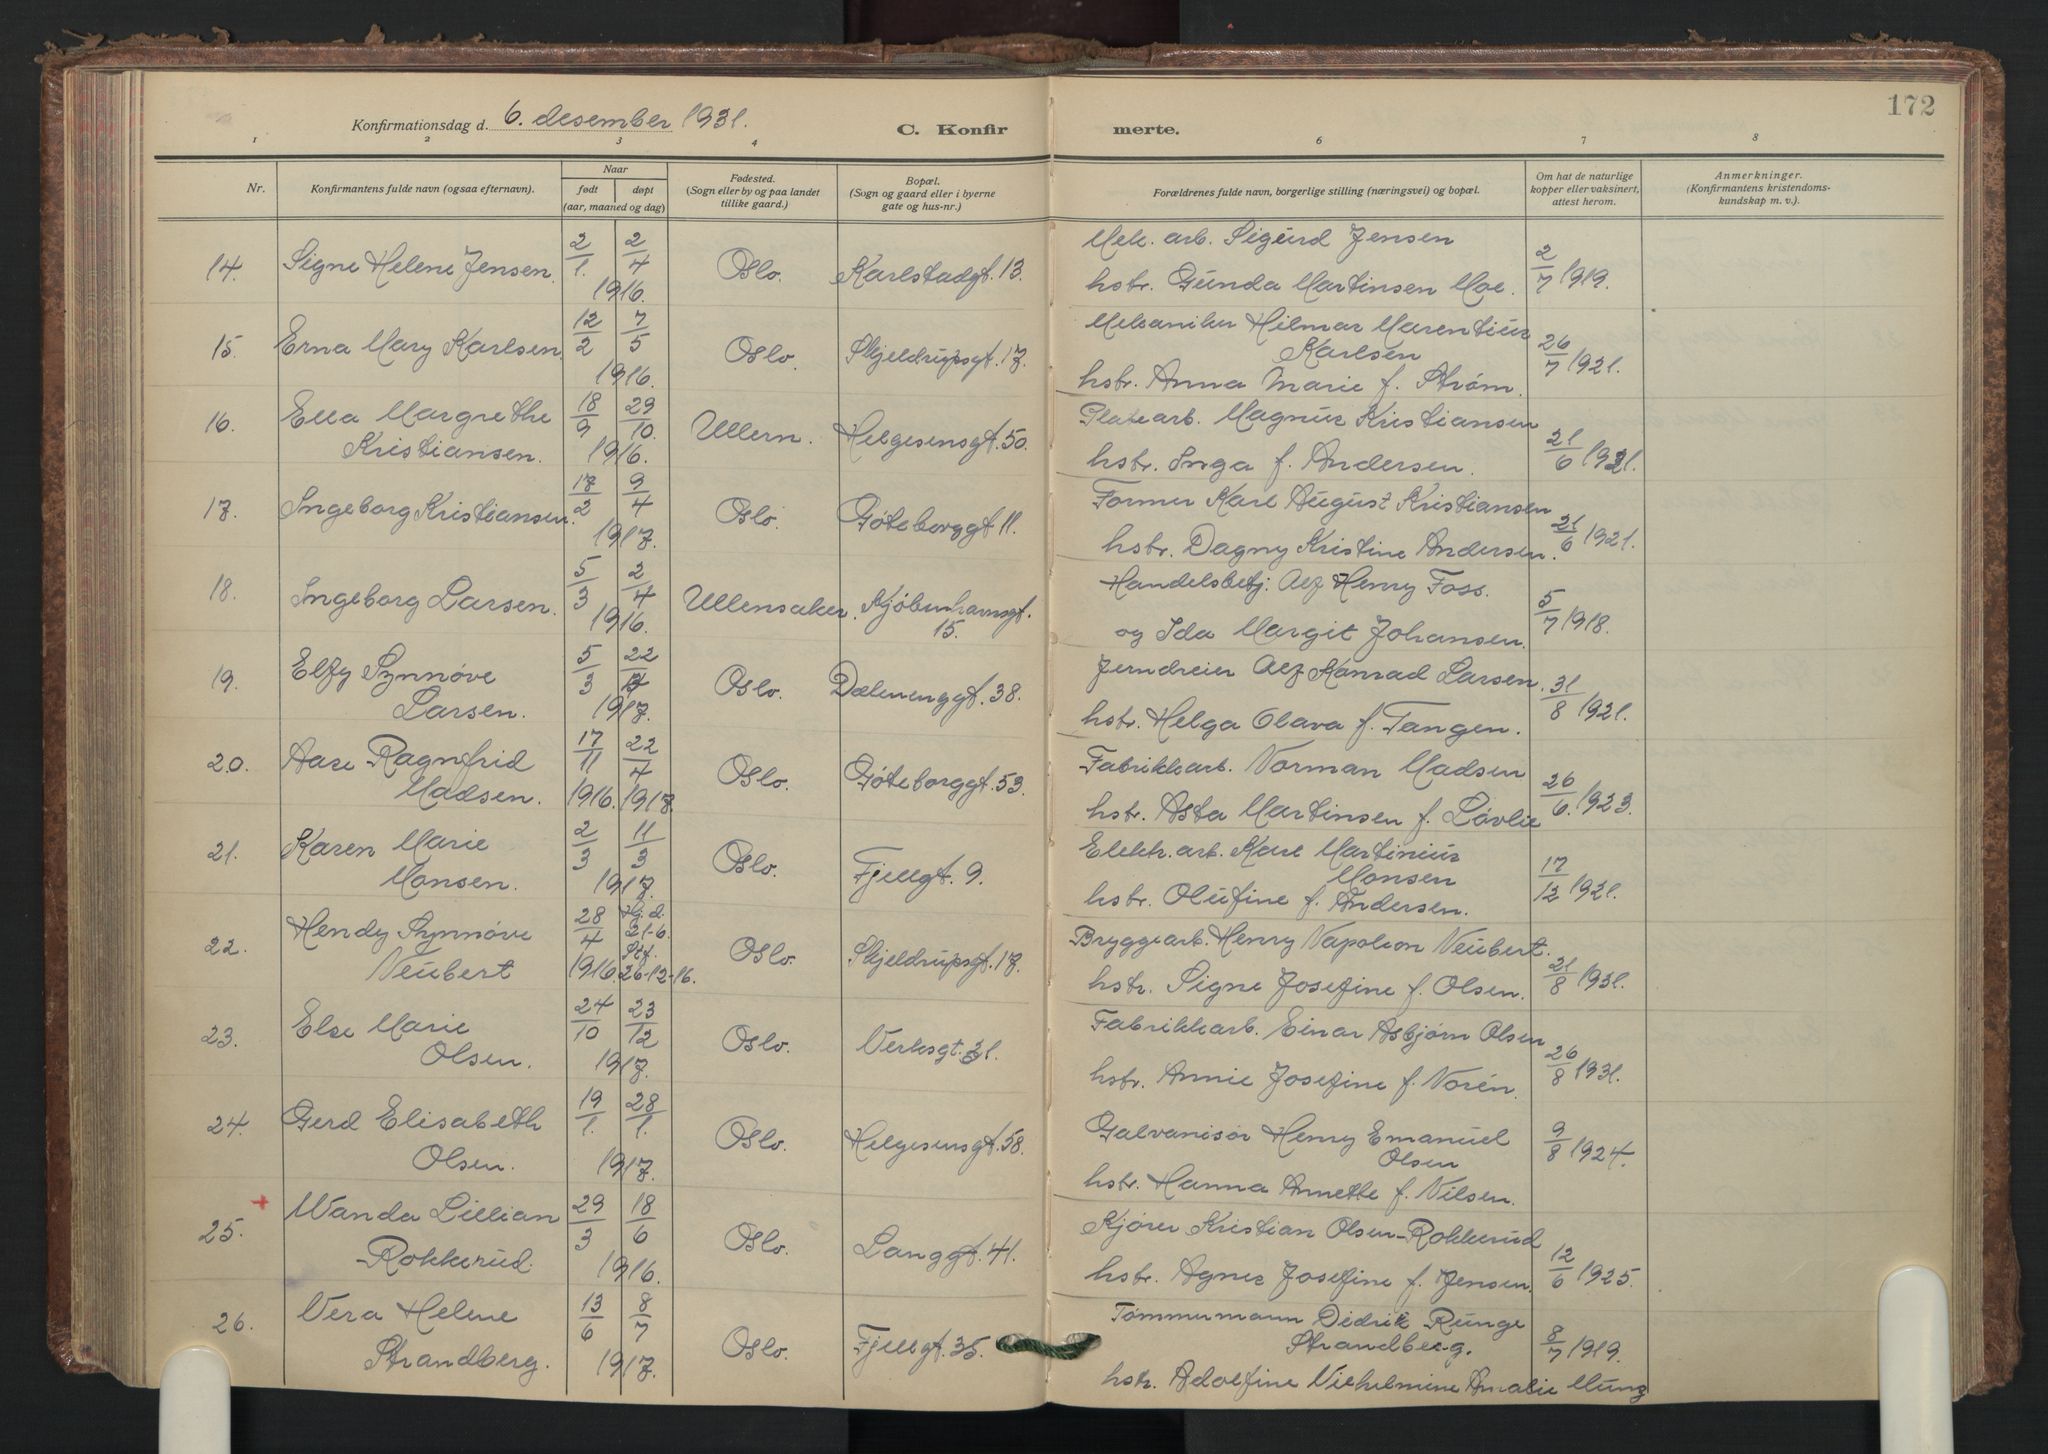 172
Konfirmationsdag d. 6. desember 1931.
C. Konfirmerte.
1 2 3 4 6 7 8
Nr.
Konfirmantens fulde navn (ogsaa efternavn).
Naar
født døpt
(aar, maaned og dag)
Fødested.
(Sogn eller by og paa landet
tillike gaard.)
Bopæl.
(Sogn og gaard eller i byerne
gate og hus-nr.)
Forældrenes fulde navn, borgerlige stilling (næringsvei) og bopæl.
Om hat de naturlige
kopper eller vaksinert,
attest herom.
Anmerkninger.
(Konfirmantens kristendoms-
kundskap m. v.).
14. Signe Helene Jensen. 2/1. 2/4 1916. Oslo. Karlstadgt. 13.
Mek. arb. Sigurd Jensen
hstr. Gunda Martinsen Moe. 2/7 1919.
15. Erna Mary Karlsen 12/2 7/5 1916. Oslo. Skjeldrupsgt. 17.
Mekaniker Hilmar Marentius
Karlsen
hstr. Anna Marie f. Strøm. 26/7 1921.
16. Ella Margrethe
Kristiansen. 18/9 29/10. 1916. Ullern. Helgesensgt. 50.
Platearb. Magnus Kristiansen
hstr. Inga f. Andersen. 21/6 1921.
17. Ingeborg Kristiansen. 17/2 9/4 1917. Oslo. Gøteborggt 11.
Former Karl August Kristiansen
hstr. Dagny Kristine Andersen. 21/6 1921.
18. Ingeborg Larsen. 5/3 2/4 1916. Ullensaker. Kjøbenhavnsgt.
15.
Handelsbetj. Alf Henry Foss.
og Ida Margit Johansen. 5/7 1918.
19. Elfy Synnøve
Larsen. 5/3 22/ 1917. Oslo. Dælenenggt. 38.
Jerndreier Alf Konrad Larsen.
hstr. Helga Olava f. Tangen. 31/8 1921.
20. Aase Ragnfrid
Madsen. 17/11 1916. 22/4 1917. Oslo. Gøteborggt. 53.
Fabrikkarb. Norman Madsen
hstr. Asta Martinsen f. Løvlie 26/6. 1923.
21. Karen Marie
Monsen. 2/3 11/3 1917. Oslo. Fjellgt. 9.
Elektr. arb. Karl Martinius
Monsen
hstr. Olufine f. Andersen. 17/12 1921.
22. Hendy Synnøve
Neubert 28/4 1916. Hj. d. 21-6. Stf. 26-12-16. Oslo. Skjeldrupsgt. 17.
Bryggearb. Henry Napoleon Neubert.
hstr. Signe Josefine f. Olsen. 21/8 1931.
23. Else Marie
Olsen. 24/10 23/12 1917. Oslo. Verksgt. 31.
Fabrikkarb. Einar Asbjørn Olsen
hstr. Annie Josefine f. Norén. 26/8 1931.
24. Gerd Elisabeth
Olsen. 19/1. 28/1. 1917. Oslo. Helgesensgt. 58.
Galvanisør Henry Emanuel
Olsen
hstr. Hanna Annette f. Nilsen. 9/8 1924.
+
25. Wanda Lillian
Rokkerud. 29/3 18/6 1916. Oslo. Langgt. 41.
Kjører Kristian Olsen-Rokkerud
hstr. Agnes Josefine f. Jensen. 12/6 1925.
26. Vera Helene
Strandberg. 13/6 8/7 1917. Oslo. Fjellgt. 35.
Tømmermann Didrik Runge
Strandberg.
hstr. Adolfine Vilhelmine Amalie 8/7 1919.